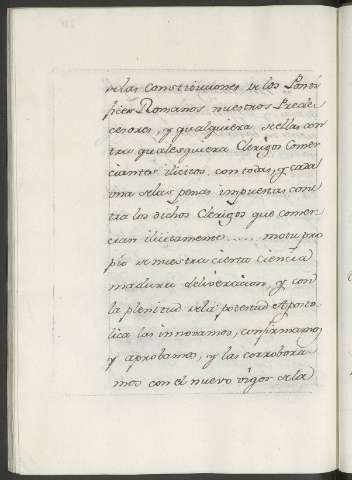 de las Constituciones de los Pontifi
fices Romanos nuestros Prede
cesores, y qualquiera de ellas con
tra qualesquiera Clerigos Comer
ciantes ilicitos, con todas, y cada
una de las penas impuestas con
tra los dichos Clerigos que comer
cian ilicitamente ..... motu pro
pio de nuestra cierta ciencia
madura deliveracion, y con
la plenitud de la potestad Aposto
lica las innovamos, confirmamos
y aprobamos, y las corrobora
mos con el nuevo vigor de la